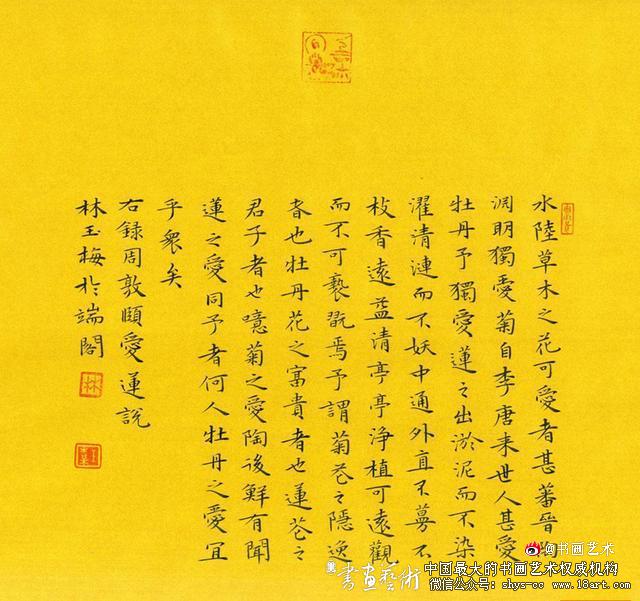 水陸草木之花可愛者甚蕃晉陶
淵明獨愛菊自李唐来世人甚愛
牡丹予獨愛蓮之出淤泥而不染
濯清漣而不妖中通外直不蔓不
枝香遠益清亭亭浄植可遠觀
而不可褻翫焉予謂菊花之隱逸
者也牡丹花之富貴者也蓮花之
君子者也噫菊之愛陶後鮮有聞
蓮之愛同予者何人牡丹之愛宜
乎衆矣
右錄周敦頤愛蓮説
林玉梅於端閣
林
@书画艺术
書畫藝術
中国最大的书画艺术权威机构
微信公众号：shys-cc www.18art.com